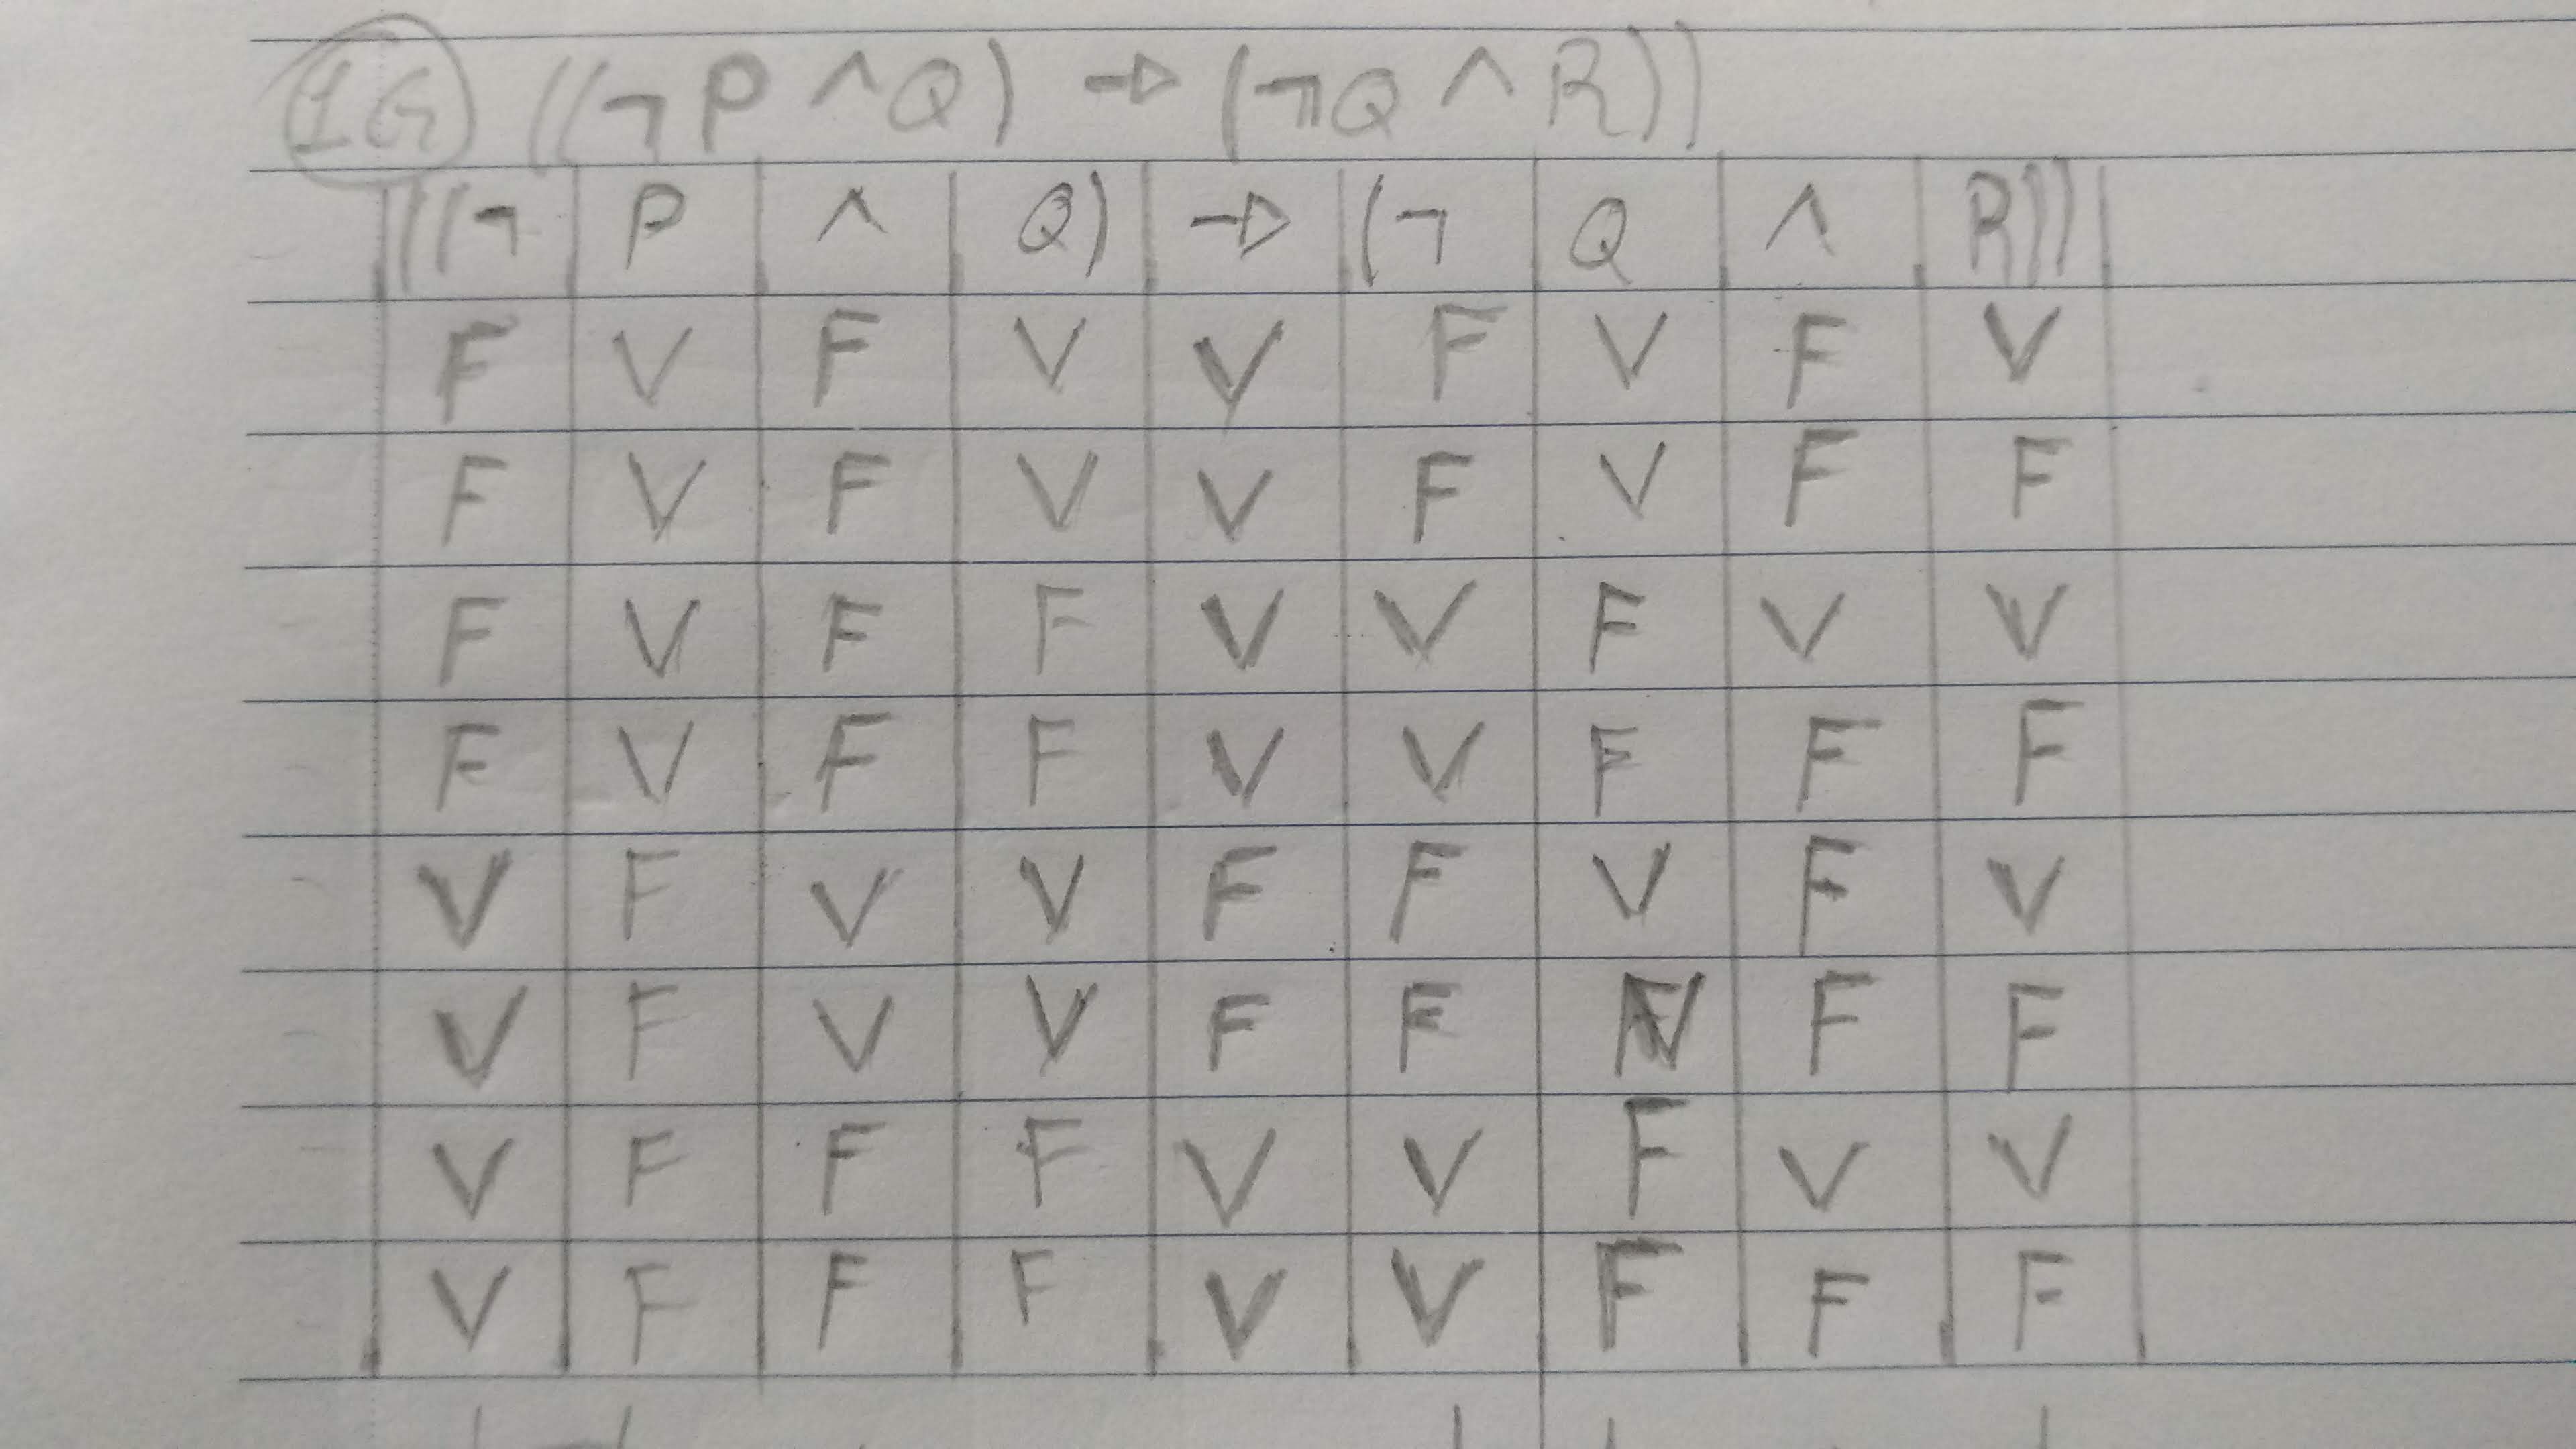 1G ((¬P ∧ Q) → (¬Q ∧ R))
((¬ P ∧ Q) → (¬ Q ∧ R))
F V F V V F V F V
F V F V V F V F F
F V F F V V F V V
F V F F V V F F F
V F V V F F V F V
V F V V F F V F F
V F F F V V F V V
V F F F V V F F F